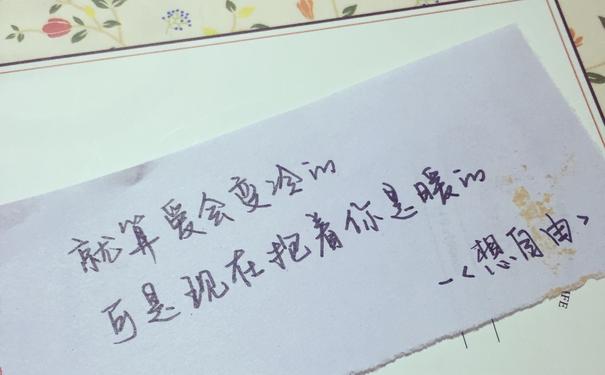 就算爱会变冷的
可是现在抱着你是暖的
—<想自由>
IFE